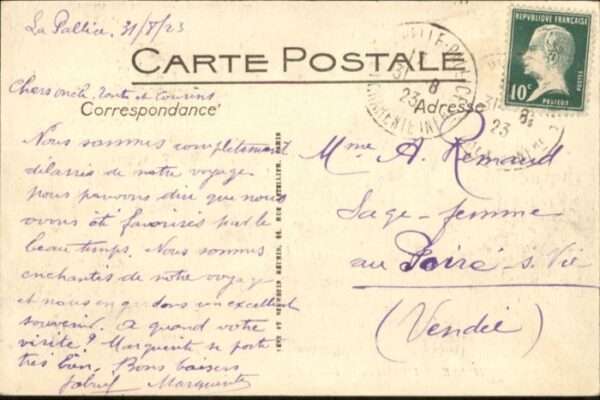 La Pallice, 31/8/23
CARTE POSTALE
Chers oncle, tante et cousins
Correspondance
Nous sommes complètement
délassés de notre voyage
nous pouvons dire que nous
avons été favorisés par le
beau temps. Nous sommes
enchantés de notre voyage
et nous en gardons un excellent
souvenir. A quand votre
visite? Marguerite se porte
très bien. Bons baisers
Marguerite
Adresse
Mme A. Remaud
Sage-femme
au Poiré-s-Vie
(Vendée)
REPUBLIQUE FRANÇAISE
10c
PASTEUR
POSTES
31 8
23
CHARENTE INFRE
31 8
23